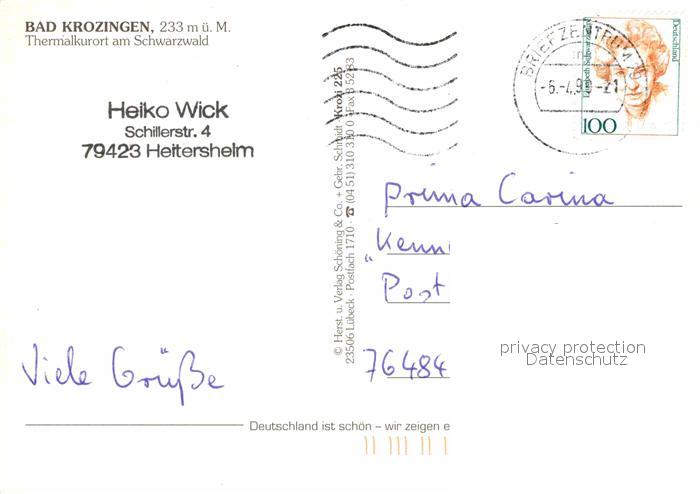 BAD KROZINGEN, 233 m ü. M.
Thermalkurort am Schwarzwald
Heiko Wick
Schillerstr. 4
79423 Heitersheim
Viele Grüße
© Herst. u. Verlag Schöning & Co. + Gebr. Schmidt · Krozi 225
23506 Lübeck · Postfach 1710 · ☎ (04 51) 310 310 · Fax 8 52 83
BRIEFZENTRUM 79
Deutschland
100
Prima Carina
"Kenn
Post
76484
privacy protection
Datenschutz
Deutschland ist schön – wir zeigen e